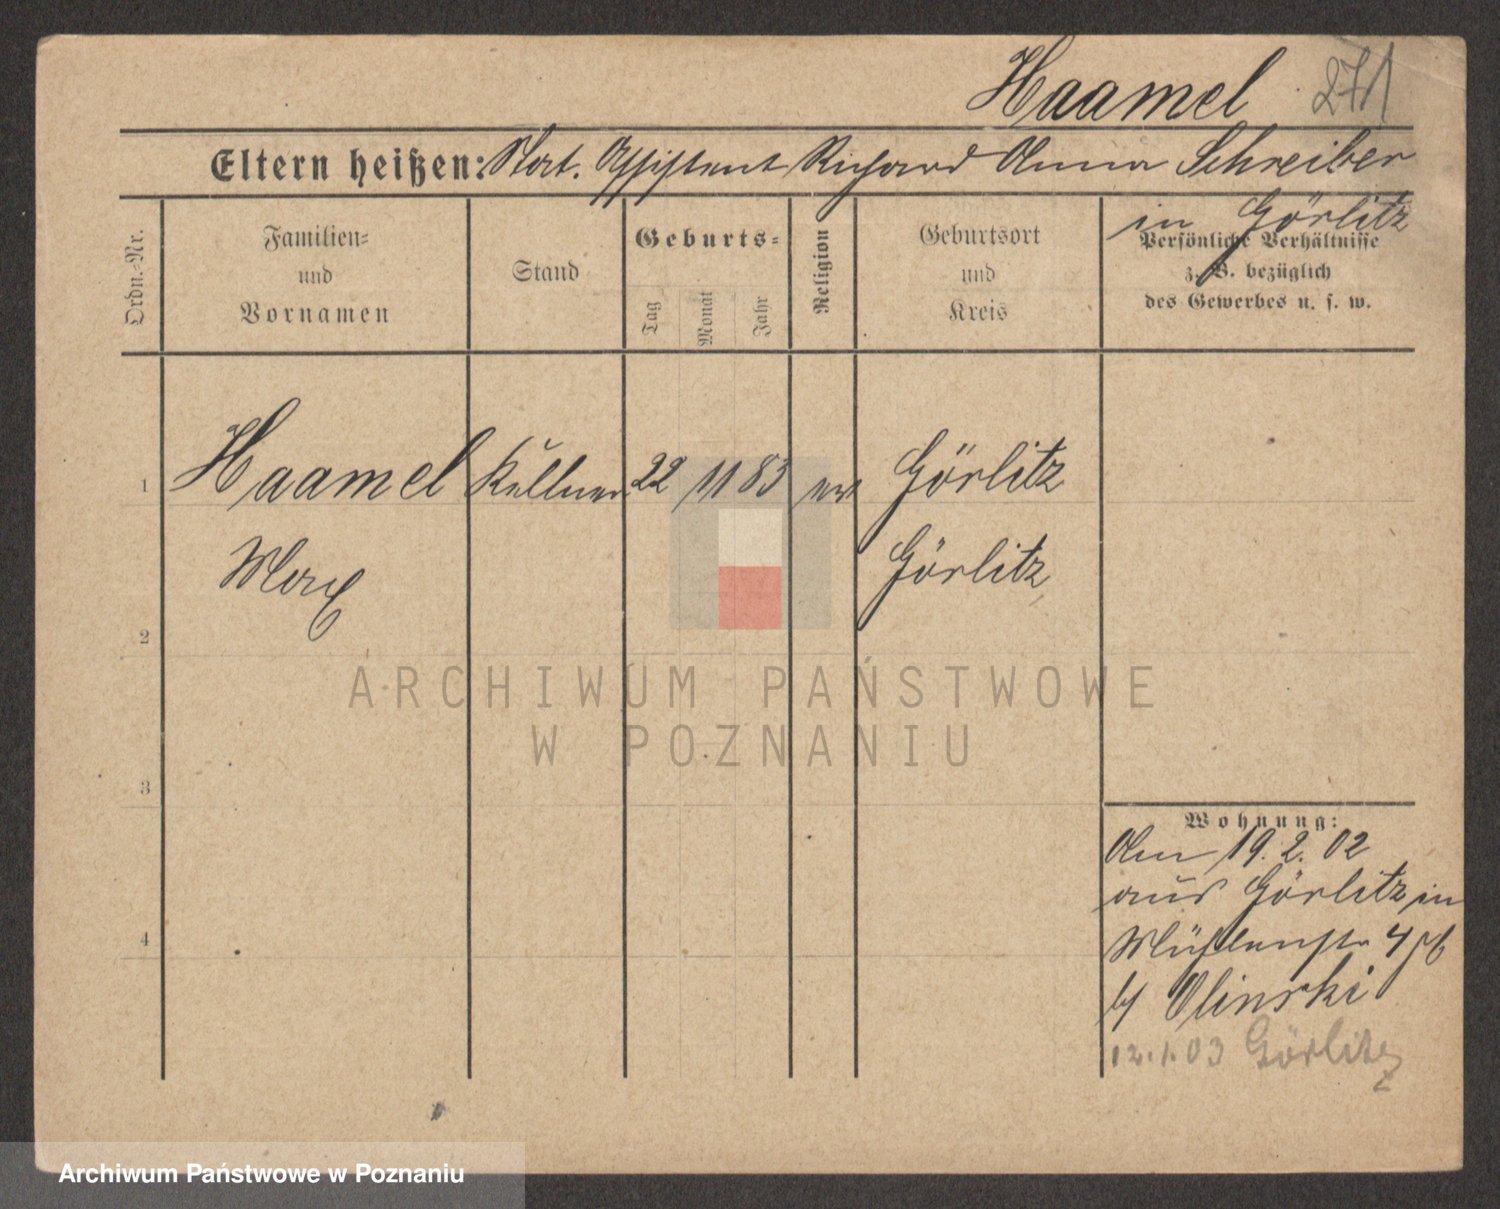 Haamel 271
Eltern heißen: Stat. Assistent Richard Anna Schreiber
in Görlitz
Ordn.-Nr.
Familien-
und
Vornamen
Stand
Geburts-
Tag
Monat
Jahr
Religion
Geburtsort
und
Kreis
Persönliche Verhältnisse
z. B. bezüglich
des Gewerbes u. s. w.
1 Haamel Kellner 22 11 83 ev Görlitz
Max Görlitz
2
3
4
ARCHIWUM PAŃSTWOWE
W POZNANIU
Wohnung:
Am 19. 2. 02
aus Görlitz in
Mühlenstr 4
b/ Olinski
12.1.03 Görlitz
Archiwum Państwowe w Poznaniu